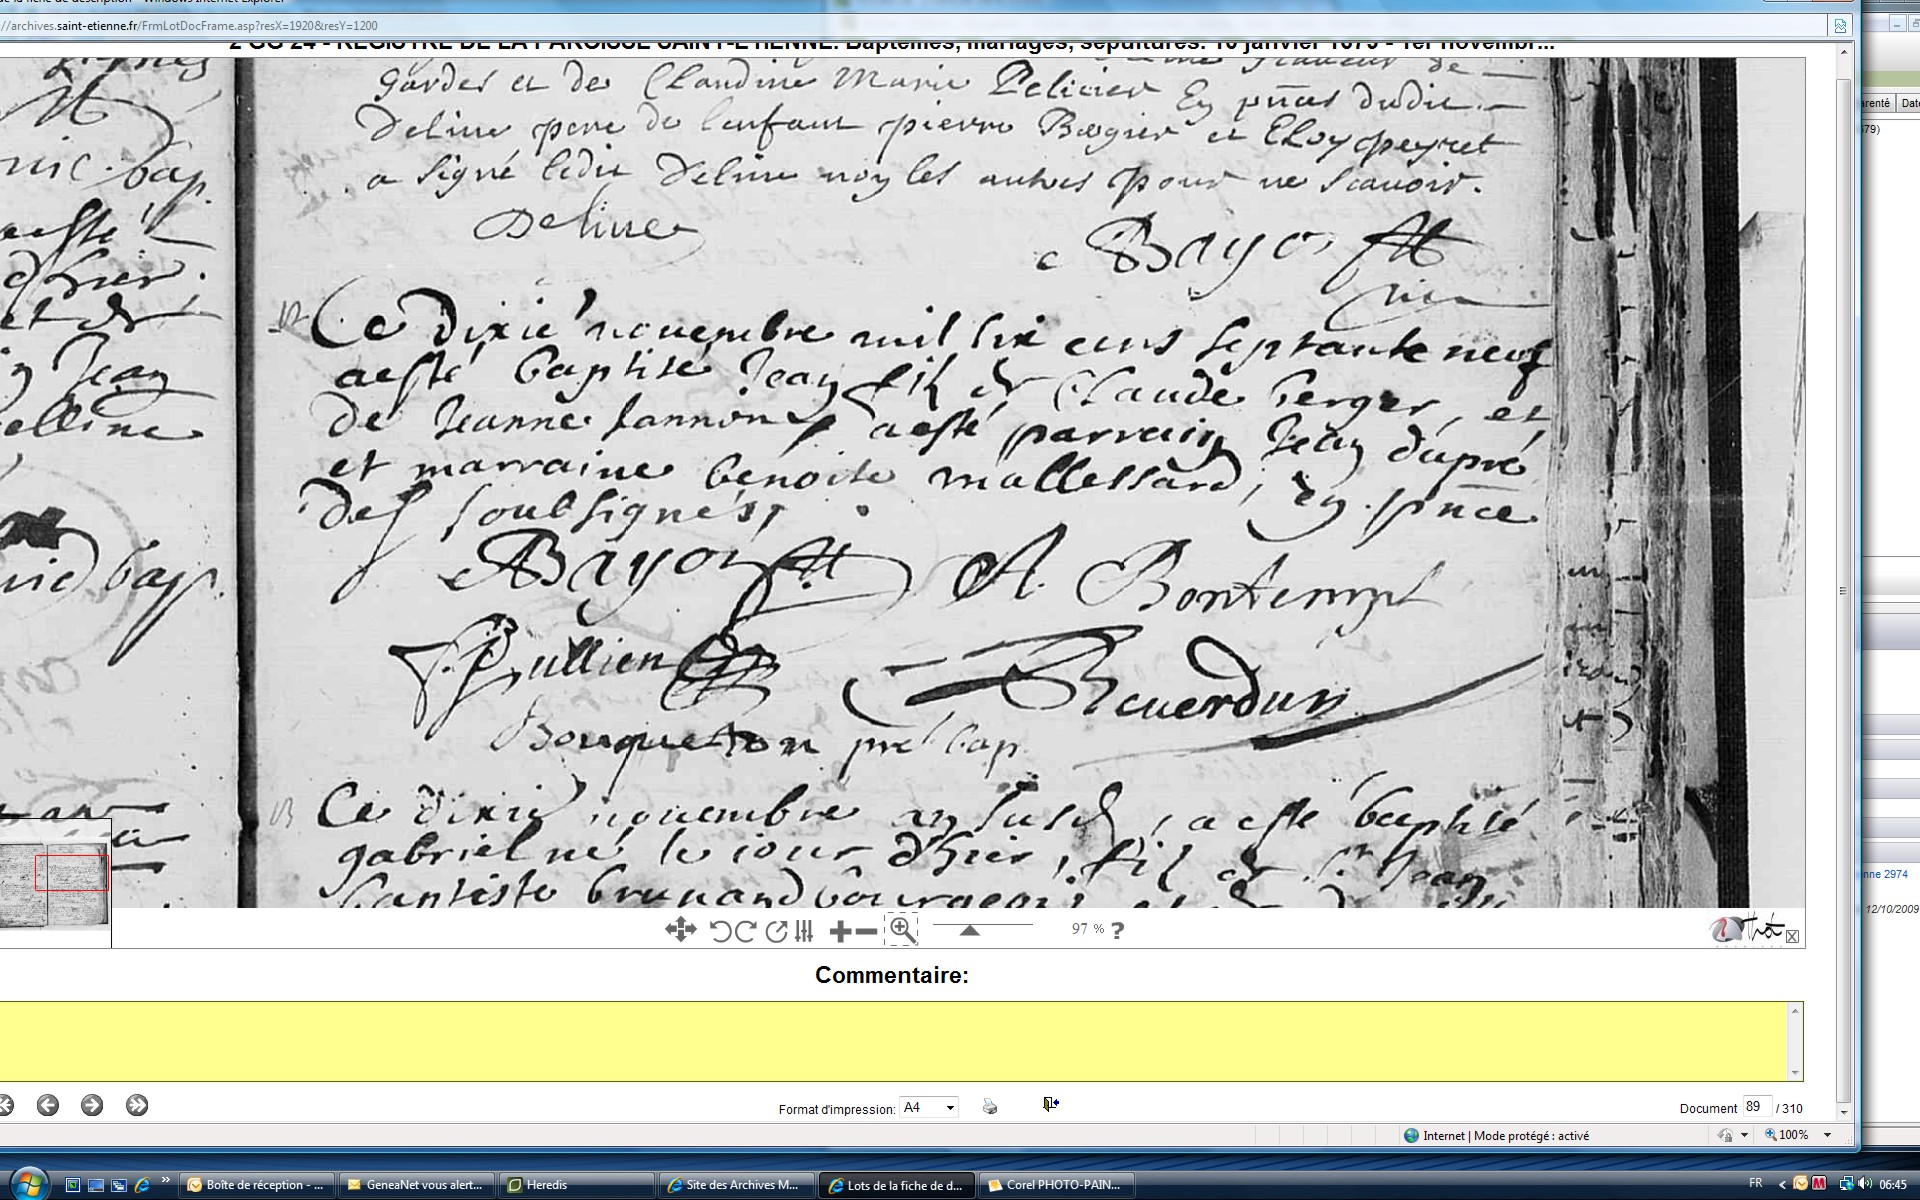 de la fiche de description - Windows Internet Explorer
://archives.saint-etienne.fr/FrmLotDocFrame.asp?resX=1920&resY=1200
2 GG 24 - REGISTRE DE LA PAROISSE SAINT-ETIENNE. Baptêmes, mariages, sépultures. 10 janvier 1679 - 1er novembr...
gardes et de Claudine Marie Pelicier En pñces dudit
Deline pere de lenfant pierre Rogier et Eloy peyret
a signé ledit Deline noy les autres pour ne scauoir.
Deline
Bayon
vic
Ce dixie nouembre mil six cens septante neuf
aesté baptisé Jean fils de Claude Berger, et
de Jeanne fannon, aesté parrain Jean dupré
et marraine benoite mallessard, En pñce
des soubsignés,
Bayon A. Bontemps
Jullien Reuerdun
Bouquetton pre bap
nic. bap.
aesté
d'hier.
Jean
elline
vic bap.
13 Ce dixie nouembre an susd, aesté baptisé
gabriel né le iour d'hier, fils de sr Jean
baptiste brunand bourgeois
97 % ?
Commentaire:
Format d'impression: A4
Document 89 / 310
Internet | Mode protégé : activé
100%
arenté Date
79)
nne 2974
12/10/2009
Boîte de réception - ...
GeneaNet vous alert...
Heredis
Site des Archives M...
Lots de la fiche de d...
Corel PHOTO-PAIN...
FR
06:45